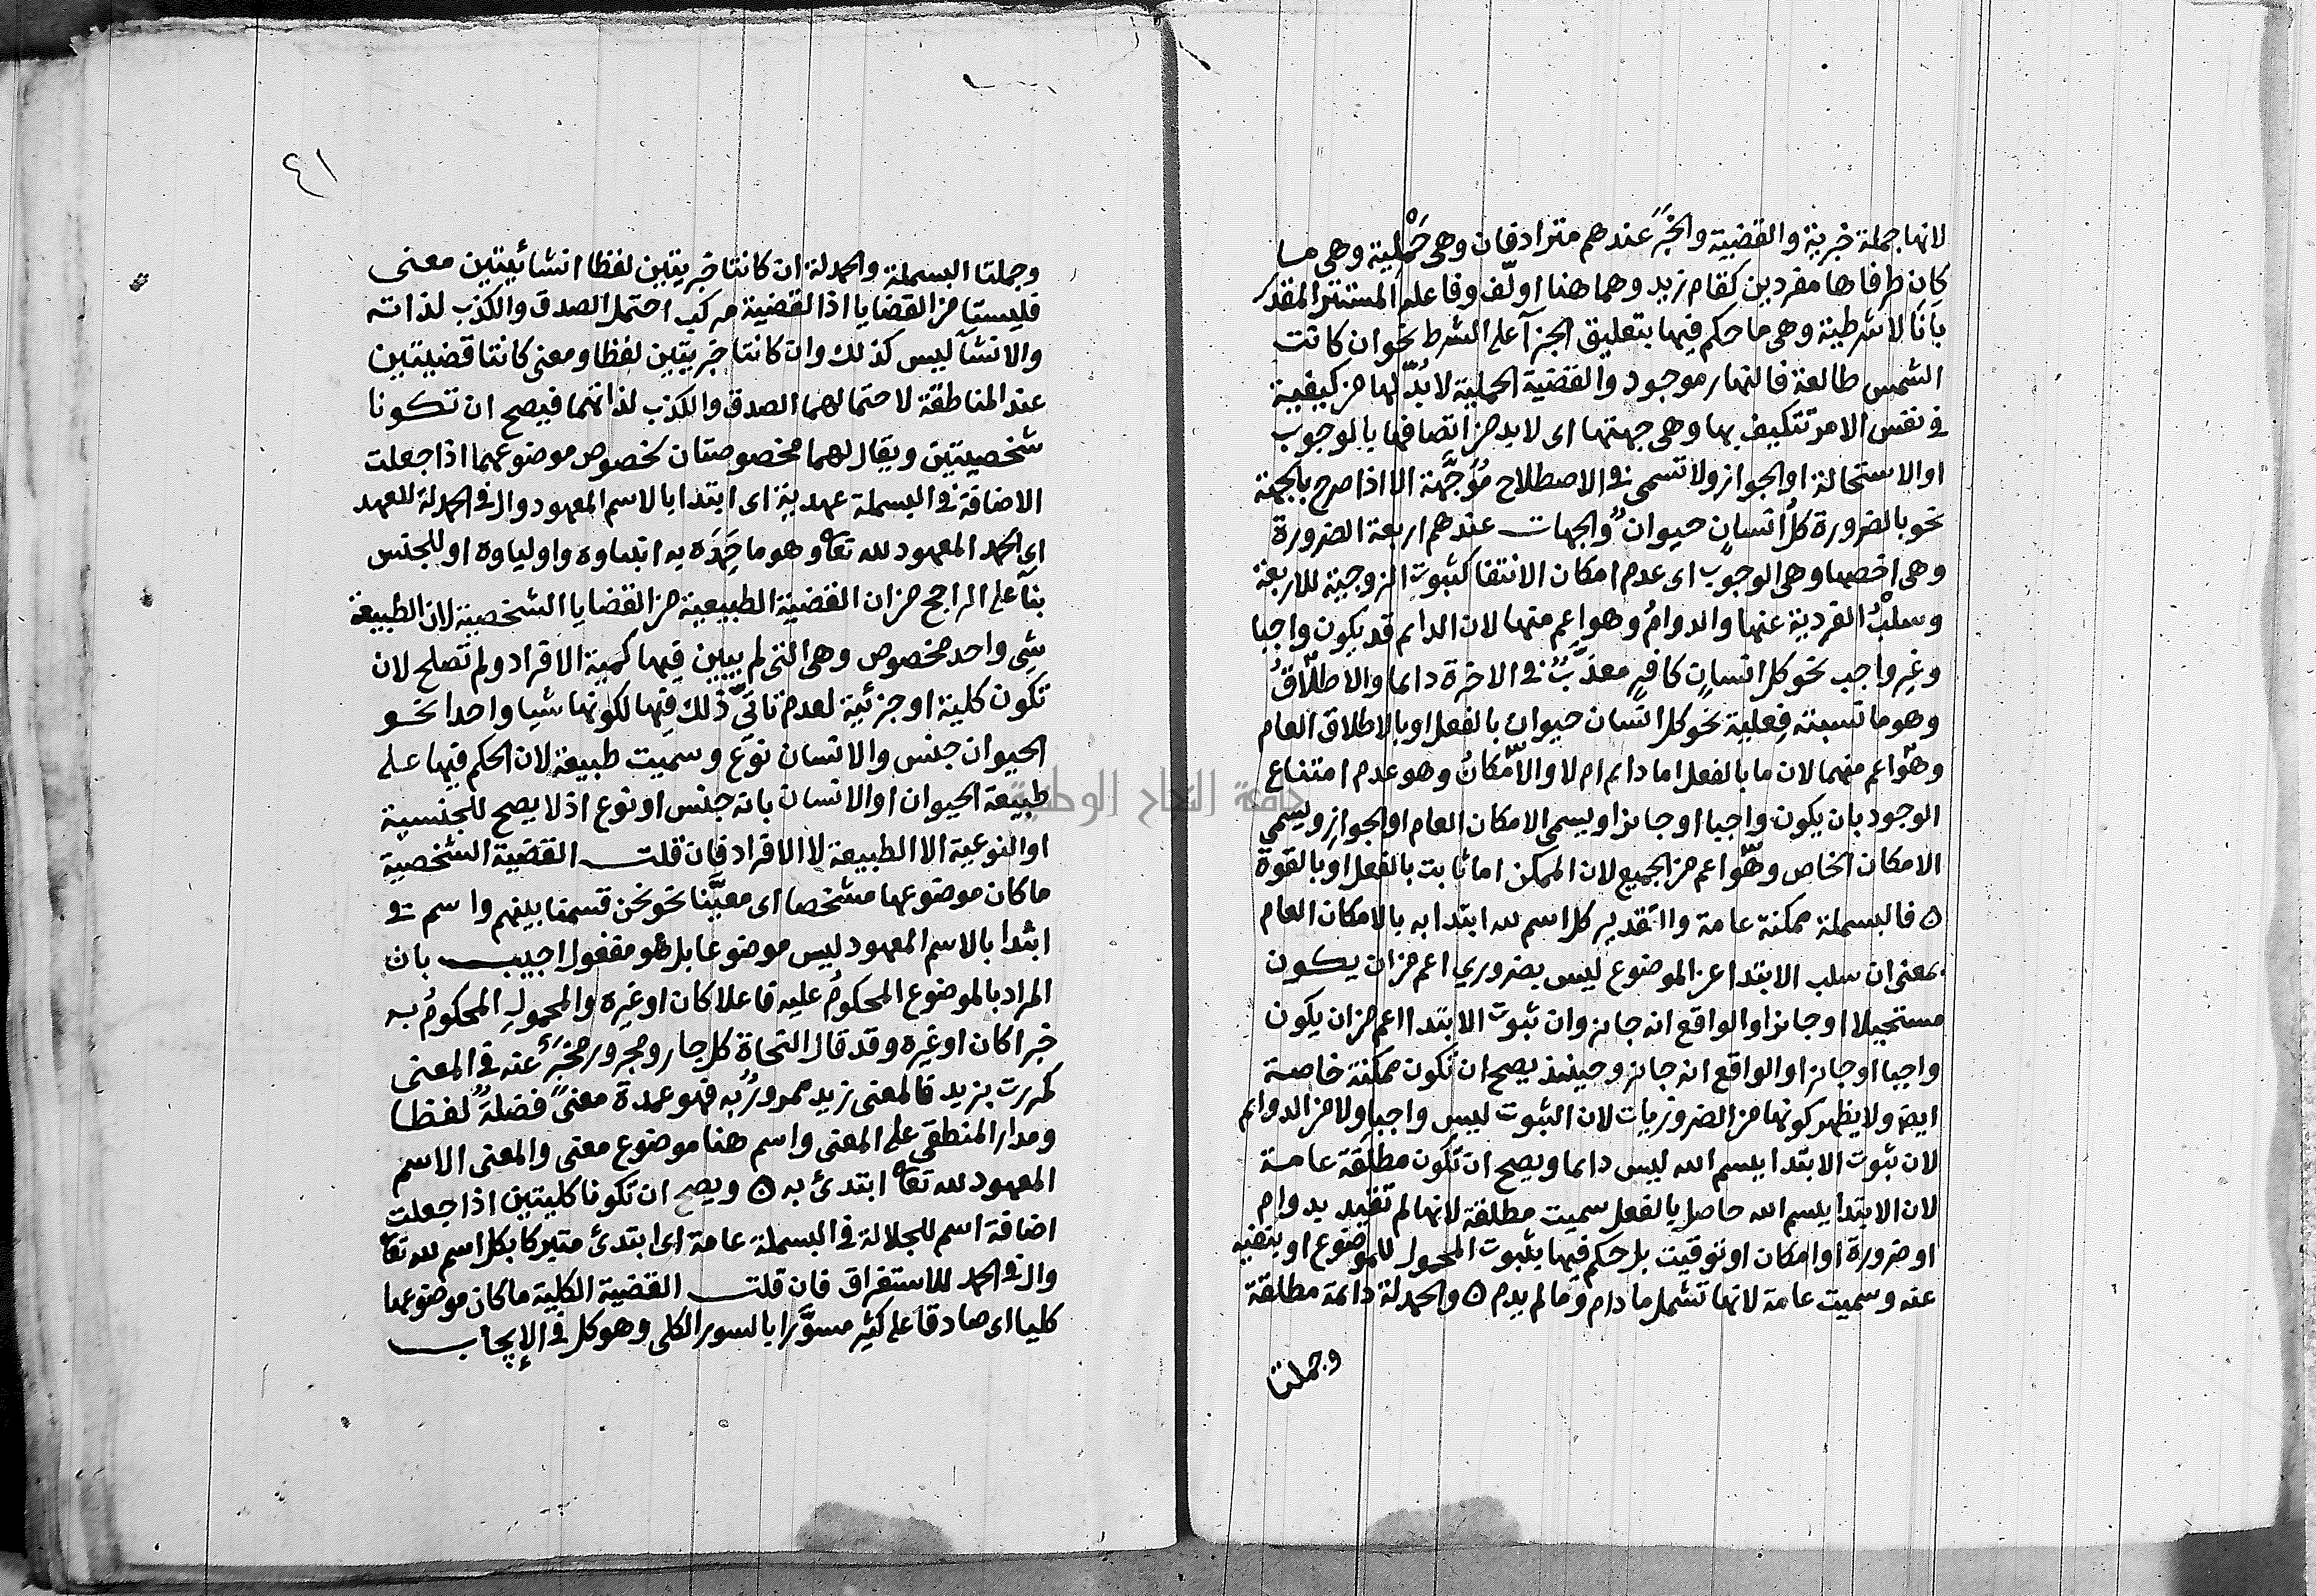 لانها جملة خبرية والقضية والخبَرُ عندهم مترادفان وهى حَمْلية وهى ما
كان طرفاها مفردين كقام زيد وهما هنا اولّف وفاعله المستتر المقدر
بانَا لا شرطية وهى ما حكم فيها بتعليق الجزآ على الشرط نحو ان كانت
الشمس طالعة فالنهار موجود والقضية الحملية لا بُدّ لها من كيفية
فى نفس الامر تتكيف بها وهى جهتها اى لابد من اتصافها بالوجوب
او الاستحالة او الجواز ولا تسمى فى الاصطلاح مُوَجَّهة الا اذا صرح بالجهة
نحو بالضرورة كلُ انسانٍ حيوانٌ والجهات عندهم اربعة الضرورة
وهى اخصها وهى الوجوب اى عدم امكان الانتفا كثبوتِ الزوجية للاربعة
وسلْبُ الفردية عنها والدوامُ وهو اعم منها لان الدايم قد يكون واجبا
وغير واجب نحو كل انسانٍ كافرٍ معذَّبٌ فى الاخرة دايما والاطلاقُ
وهو ما نسبته فِعلية نحو كل انسان حيوان بالفعل او بالاطلاق العام
وهو اعم منهما لان ما بالفعل اما دايم ام لا والامكانُ وهو عدم امتناع
الوجود بان يكون واجبا او جايزا ويسمى الامكان العام او الجوازِ ويسمى
الامكان الخاص وهو اعم من الجميع لان الممكن اما ثابت بالفعل او بالقوة
ه فالبسملة ممكنة عامة واالتقدير كل اسم لله ابتدا به بالامكان العام
بمعنى ان سلب الابتدا عن الموضوع ليس بضروري اعم من ان يكون
مستحيلا او جايزا والواقع انه جايز وان ثبوت الابتدا اعم من ان يكون
واجبا او جايزا والواقع انه جايز وحينئذ يصح ان تكون ممكنة خاصة
ايضا ولا يظهر كونها من الضروريات لان الثبوت ليس واجبا ولا من الدوايم
لان ثبوت الابتدا ببسم الله ليس دايما ويصح ان تكون مطلقة عامة
لان الابتدا ببسم الله حاصل بالفعل سميت مطلقة لانها لم تقيد بدوام
او ضرورة او امكان او توقيت بل حكم فيها بثبوت المحمول للموضوع او بنفيه
عنه وسميت عامة لانها تشمل ما دام وما لم يدم ه والحمدلة دائمة مطلقة
وجملتا
٤١
وجملتا البسملة والحمدلة ان كانتا خبريتين لفظا انشائيتين معنى
فليستا من القضايا اذ القضية مركب احتمل الصدق والكذب لذاته
والانشآ ليس كذلك وان كانتا خبريتين لفظا ومعنى كانتا قضيتين
عند المناطقة لاحتمالهما الصدق والكذب لذاتهما فيصح ان تكونا
شخصيتين ويقال لهما مخصوصتان لخصوص موضوعهما اذا جعلت
الاضافة فى البسملة عهدية اى ابتدا بالاسم المعهود وال فى الحمدلة للعهد
اى الحمد المعهود لله تعا وهو ما حَمِدَه به انبياوه واولياوه او للجنس
بنآ على الراجح من ان القضية الطبيعية من القضايا الشخصية لان الطبيعة
شى واحد مخصوص وهى التى لم يبين فيها كمية الافراد ولم تصلح لان
تكون كلية او جزئية لعدم تاتى ذلك فيها لكونها شيا واحدا نحو
الحيوان جنس والانسان نوع وسميت طبيعة لان الحكم فيها على
طبيعة الحيوان او الانسان بانه جنس او نوع اذ لا يصح للجنسية
او النوعية الا الطبيعة لا الافراد فان قلت القضية الشخصية
ما كان موضوعها مشخصا اى معيَّنا نحو نحن قسمنا بينهم واسم فى
ابتدا بالاسم المعهود ليس موضوعا بل هو مفعول اجيب بان
المراد بالموضوع المحكومُ عليه فاعلا كان او غيره والمحمولِ المحكومُ به
خبرا كان او غيره وقد قال النحاة كل جار ومجرور مخبَرٌ عنه فى المعنى
كمررت بزيد فالمعنى زيد ممرورٌ به فهو عمدة معنىً فضلةٌ لفظا
ومدار المنطقى على المعنى واسم هنا موضوع معنى والمعنى الاسم
المعهود لله تعا ابتدئ به ه ويصح ان تكونا كليتين اذا جعلت
اضافة اسم للجلالة فى البسملة عامة اى ابتدئ متبركا بكل اسم لله تعا
وال فى الحمد للاستغراق فان قلت القضية الكلية ما كان موضوعها
كليا اى صادقا على كثير مسوَّرا بالسور الكلى وهو كل فى الإيجاب
جامعة النجاح الوطنية